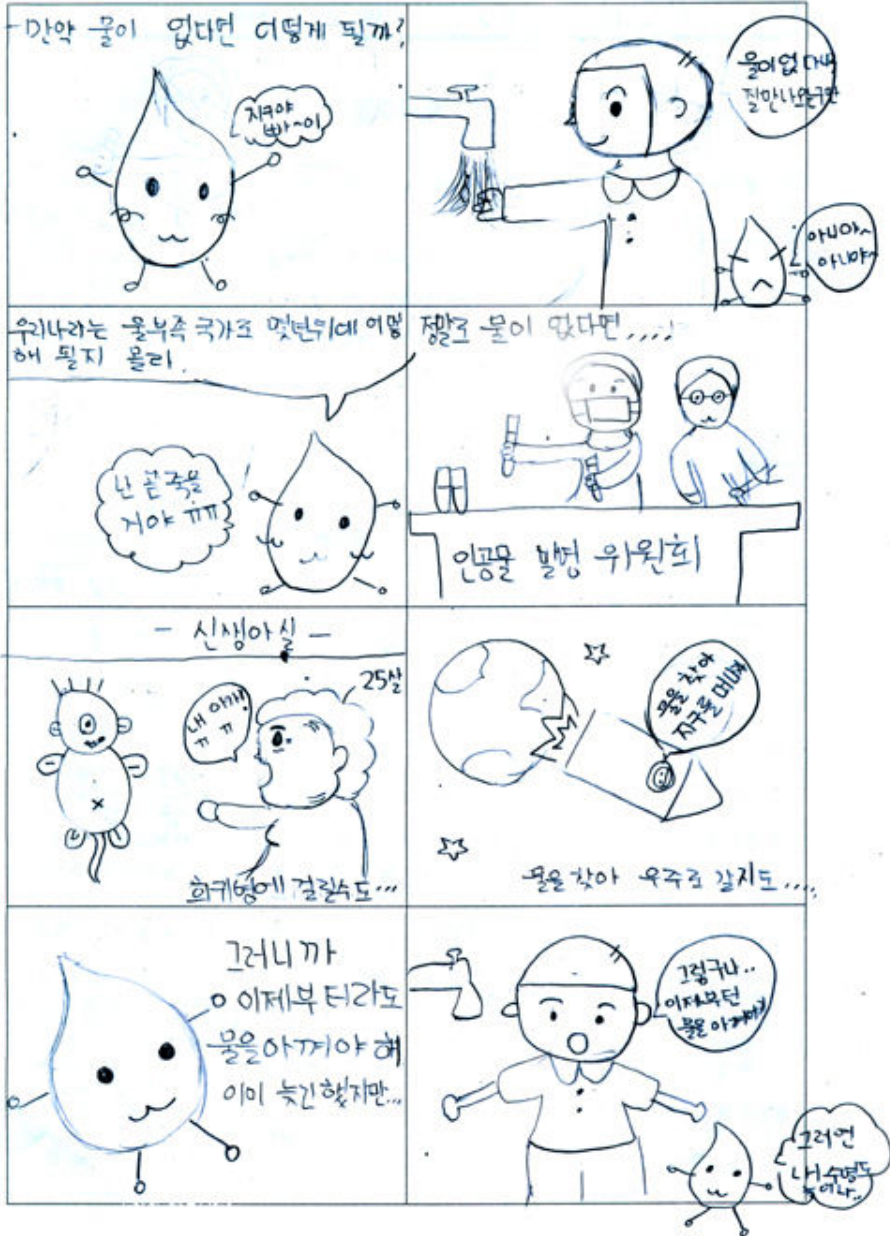 만약 물이 없다면 어떻게 될까?
지구야
빠~이
물이 없다니
잘만 나오는구만
아니야~
아니야~
우리나라는 물부족 국가로 몇년뒤에 어떻
해 될지 몰라.
난 곧 죽을
거야 ㅠㅠ
정말로 물이 없다면....
인공물 발명 위원회
- 신생아실 -
25살
내 아가!
ㅠㅠ
희귀병에 걸릴수도...
물을 찾아
지구를 떠나자
물을 찾아 우주로 갈지도....
그러니까
이제부터라도
물을 아껴야 해
이미 늦긴 했지만...
그렇구나..
이제부턴
물을 아껴야지
그러면
내 수명도
늘어나..